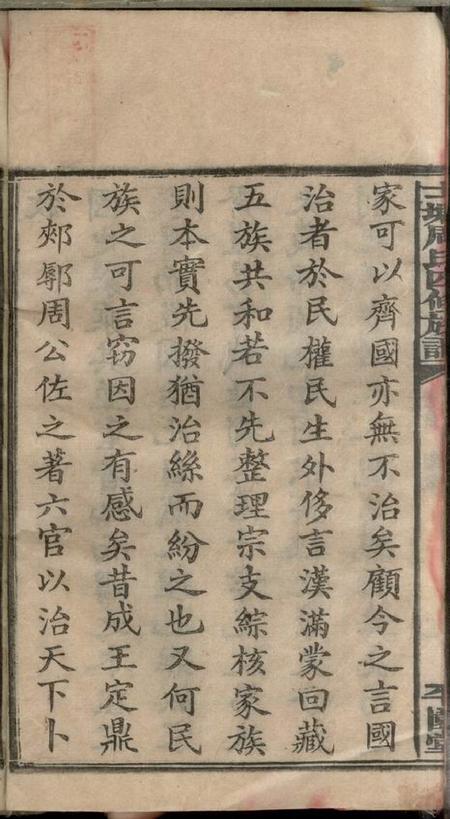 家可以齊國亦無不治矣顧今之言國
治者於民權民生外侈言漢滿蒙回藏
五族共和若不先整理宗支綜核家族
則本實先撥猶治絲而紛之也又何民
族之可言窃因之有感矣昔成王定鼎
於郟鄏周公佐之著六官以治天下卜
周氏四修族譜